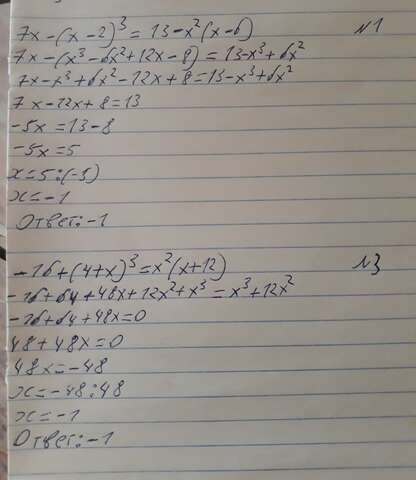 7x-(x-2)³=13-x²(x-6) №1
7x-(x³-6x²+12x-8)=13-x³+6x²
7x-x³+6x²-12x+8=13-x³+6x²
7x-12x+8=13
-5x=13-8
-5x=5
x=5:(-5)
x=-1
Ответ:-1
-16+(4+x)³=x²(x+12) №3
-16+64+48x+12x²+x³=x³+12x²
-16+64+48x=0
48+48x=0
48x=-48
x=-48:48
x=-1
Ответ:-1